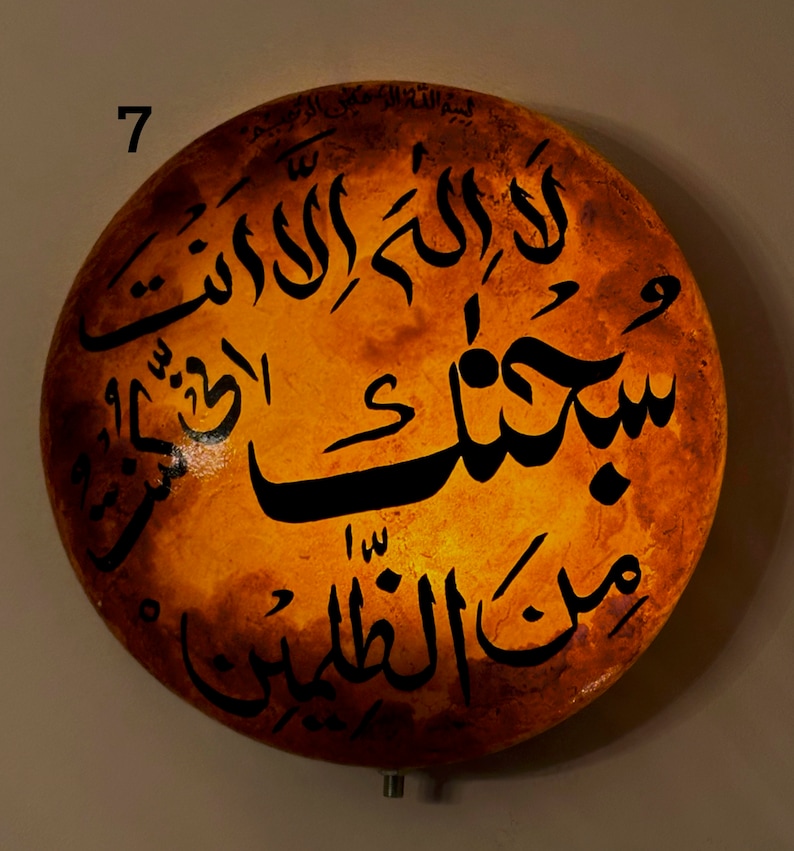 7
بسم الله الرحمن الرحيم
لَا اِلٰهَ اِلَّا اَنْتَ
سُبْحٰنَكَ
اِنِّىْ كُنْتُ
مِنَ الظّٰلِمِيْنَ